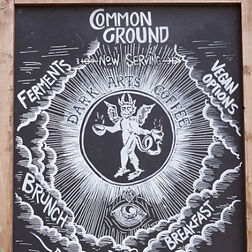 COMMON
GROUND
NOW SERVIN
FERMENTS
VEGAN
OPTIONS
DARK ARTS COFFEE
BRUNCH
BREAKFAST